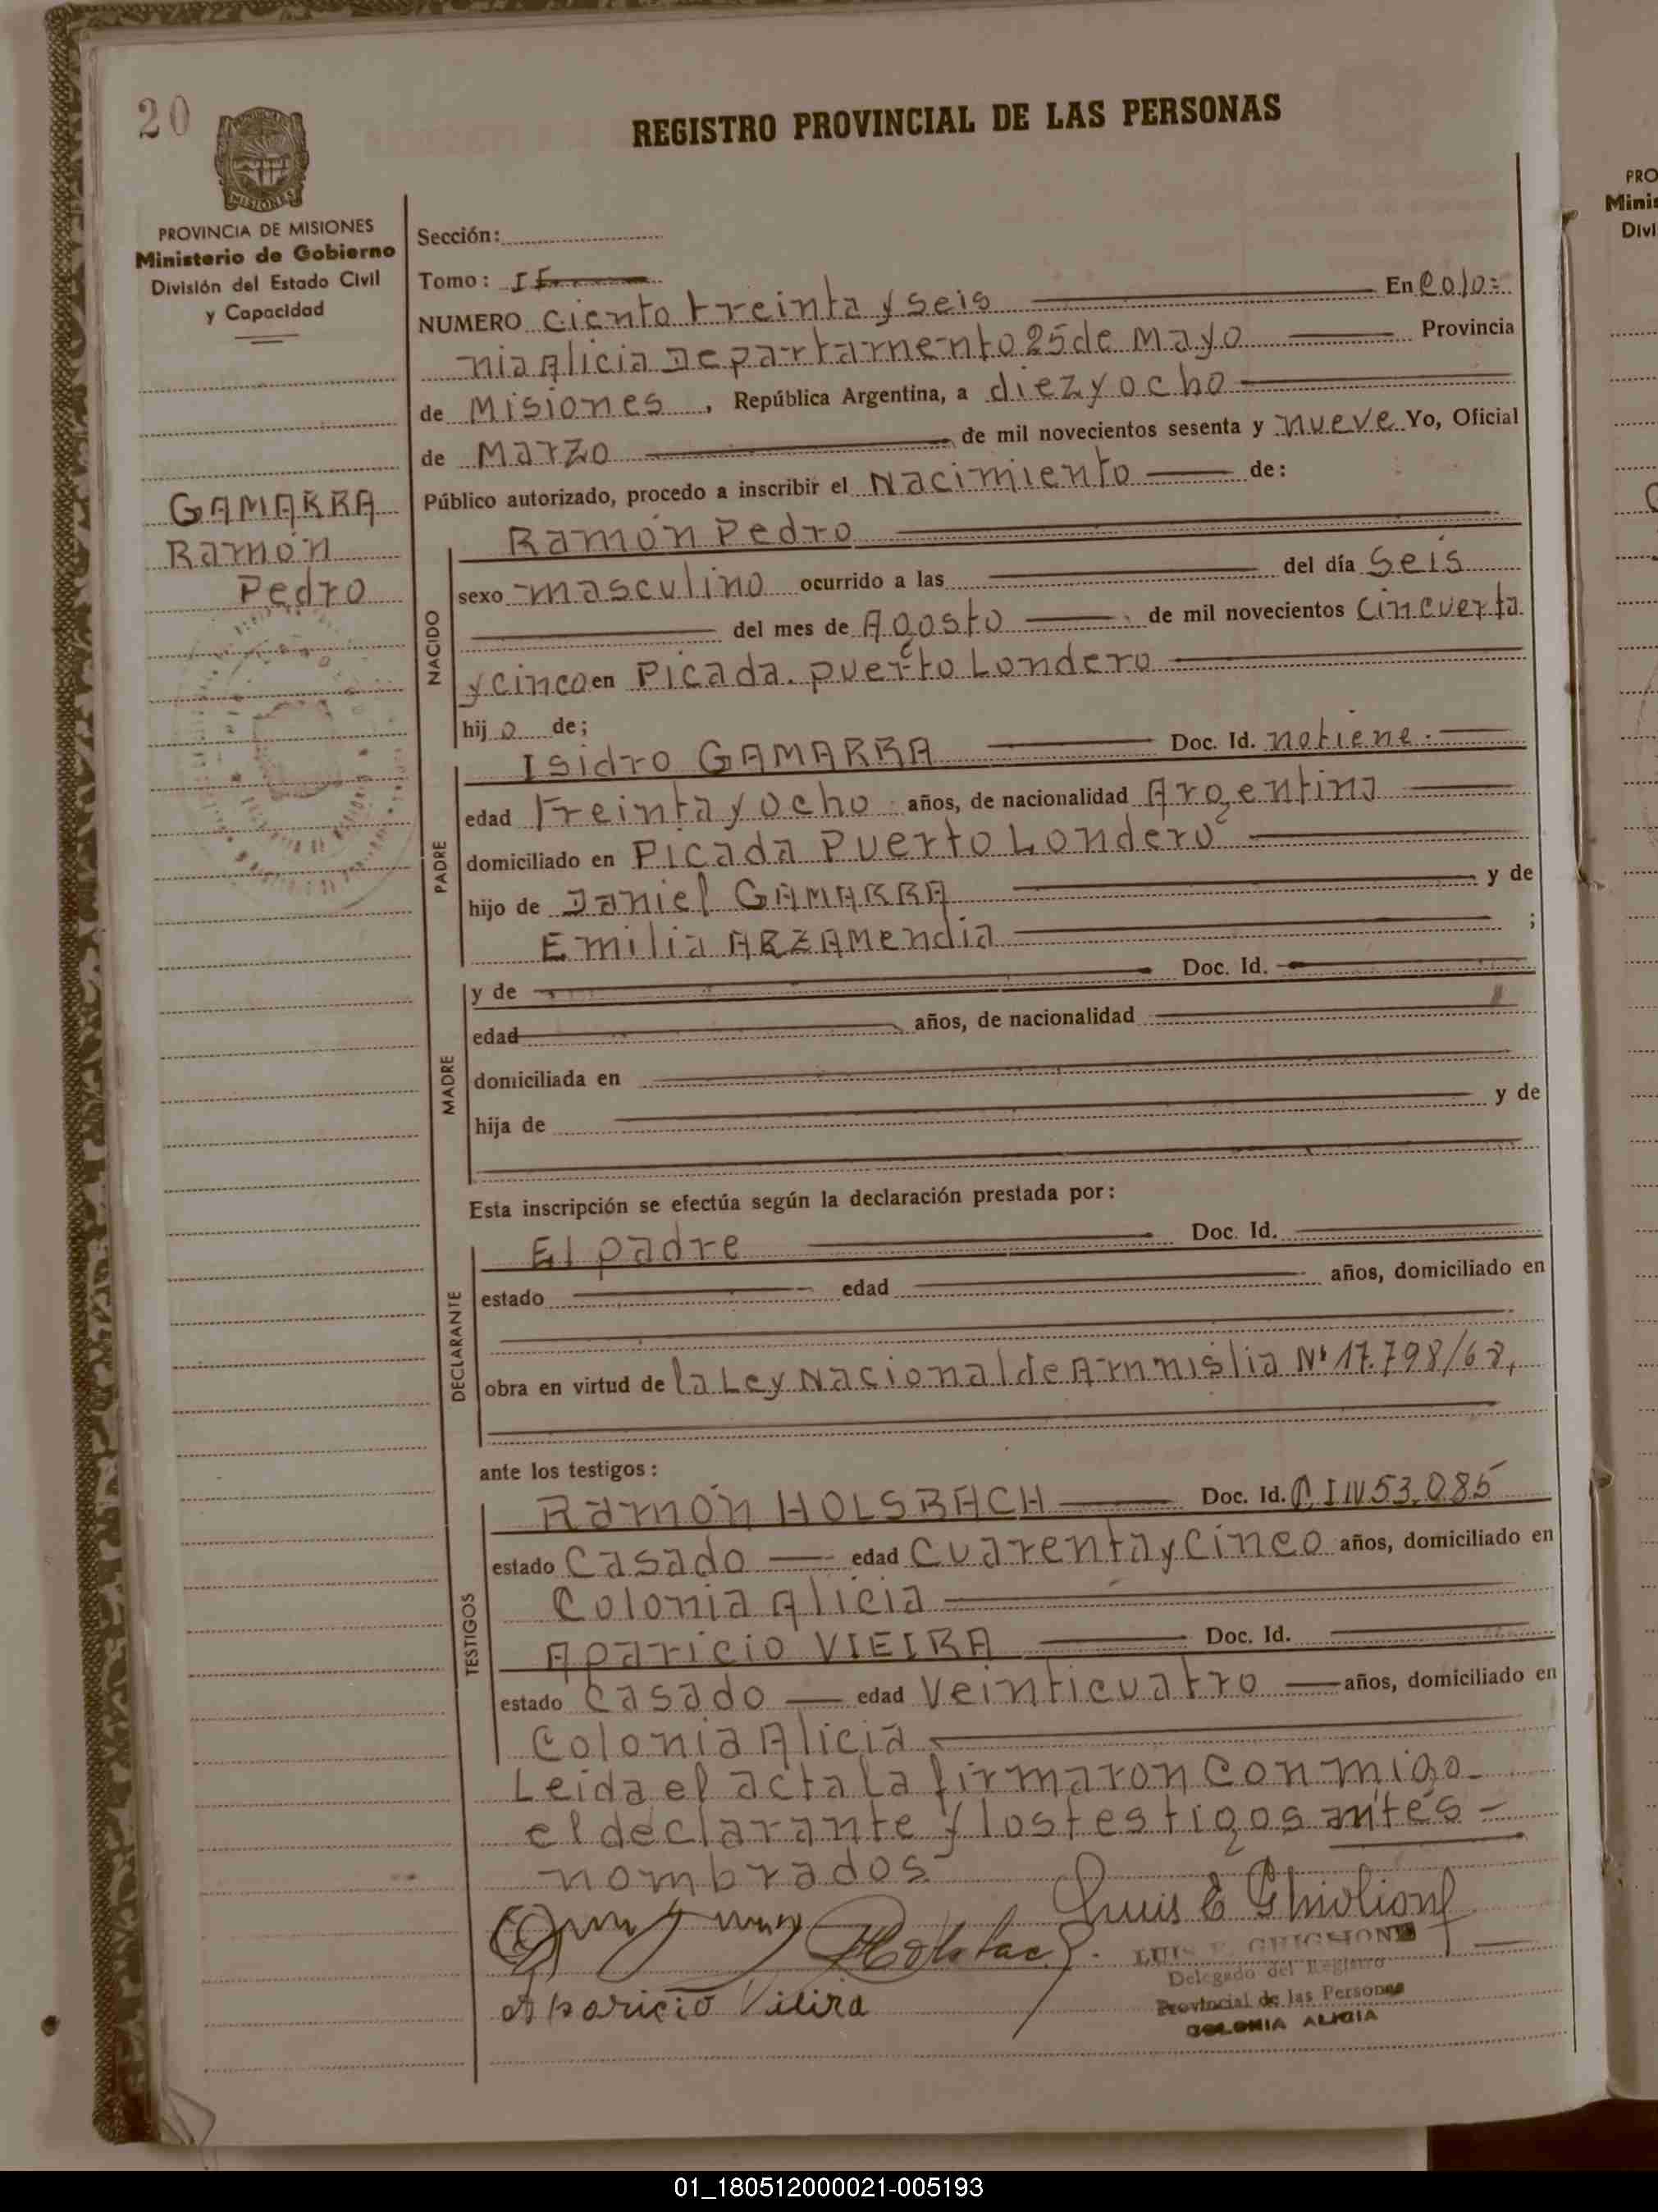 20
REGISTRO PROVINCIAL DE LAS PERSONAS
MISIONES
PROVINCIA DE MISIONES
Ministerio de Gobierno
División del Estado Civil
y Capacidad
GAMARRA
Ramón
Pedro
Sección:
Tomo:
NUMERO ciento treinta y seis En Colo=
nia Alicia Departamento 25 de Mayo Provincia
de Misiones, República Argentina, a diez y ocho
de Marzo de mil novecientos sesenta y nueve Yo, Oficial
Público autorizado, procedo a inscribir el Nacimiento de:
NACIDO
Ramón Pedro
sexo masculino ocurrido a las del día Seis
del mes de Agosto de mil novecientos cincuenta
y cinco en Picada. puerto Londero
hijo de;
PADRE
Isidro GAMARRA Doc. Id. no tiene.
edad treinta y ocho años, de nacionalidad Argentino
domiciliado en Picada Puerto Londero
hijo de Daniel GAMARRA y de
Emilia ARZAMendia ;
MADRE
y de Doc. Id.
edad años, de nacionalidad
domiciliada en
hija de y de
Esta inscripción se efectúa según la declaración prestada por:
DECLARANTE
El padre Doc. Id.
estado edad años, domiciliado en
obra en virtud de la Ley Nacional de Amnistia Nº 17.798/68,
ante los testigos:
TESTIGOS
Ramón HOLSBACH Doc. Id. C I Nº 53.085
estado Casado edad Cuarenta y Cinco años, domiciliado en
Colonia Alicia
Aparicio VIEIRA Doc. Id.
estado Casado edad Veinticuatro años, domiciliado en
Colonia Alicia
Leida el acta la firmaron conmigo
el declarante y los testigos antes -
nombrados
Luis E Ghiglione
LUIS E. GHIGLIONE
Delegado del Registro
Provincial de las Personas
COLONIA ALICIA
Aparicio Vieira
PRO
Minis
Divi
01_180512000021-005193